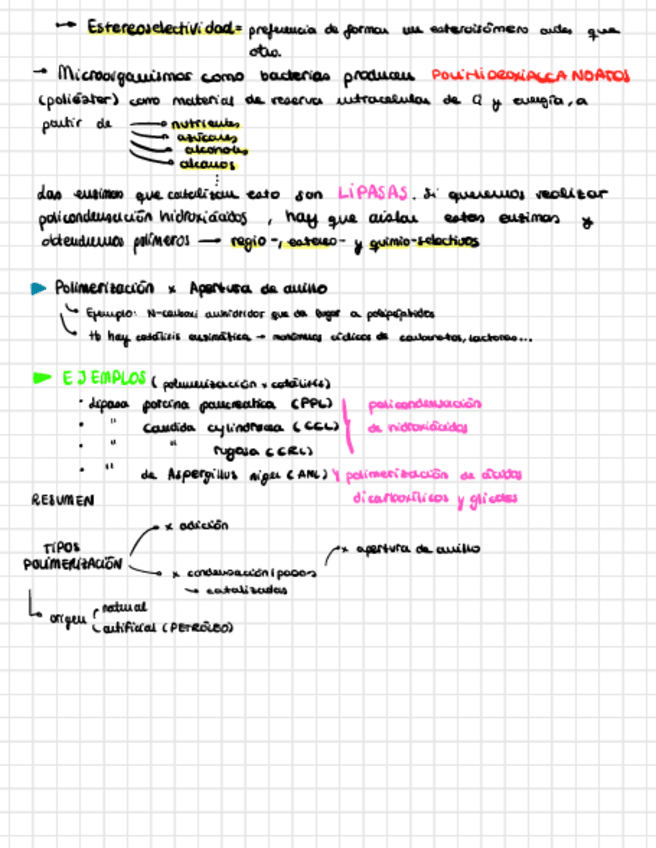 → Estereoselectividad = preferencia de formar un estereoisómero antes que
otro.
→ Microorganismos como bacterias producen POLIHIDROXIALCANOATOS
(poliéster) como material de reserva intracelular de C y energía, a
partir de → nutrientes
azúcares
alcoholes
alcanos
⋮
Las enzimas que catalizan esto son LIPASAS. Si queremos realizar
policondensación hidroxiácidos, hay que aislar estas enzimas y
obtendremos polímeros → regio-, estereo- y quimio-selectivos
▶ Polimerización x Apertura de anillo
Ejemplo: N-carboxi anhidridos que da lugar a polipéptidos
tb hay catálisis enzimática → monómeros cíclicos de carbonatos, lactonas...
▶ EJEMPLOS (polimerización x catálisis)
· Lipasa porcina pancreatica (PPL) policondensación
· " Candida cylindracea (CCL) de hidroxiácidos
· " " rugosa (CRL)
· " de Aspergillus niger (ANL) } polimerización de ácidos
dicarboxílicos y glicoles
RESUMEN
x adición
TIPOS x apertura de anillo
POLIMERIZACIÓN
x condensación/pasos
→ catalizadas
origen natural
artificial (PETRÓLEO)